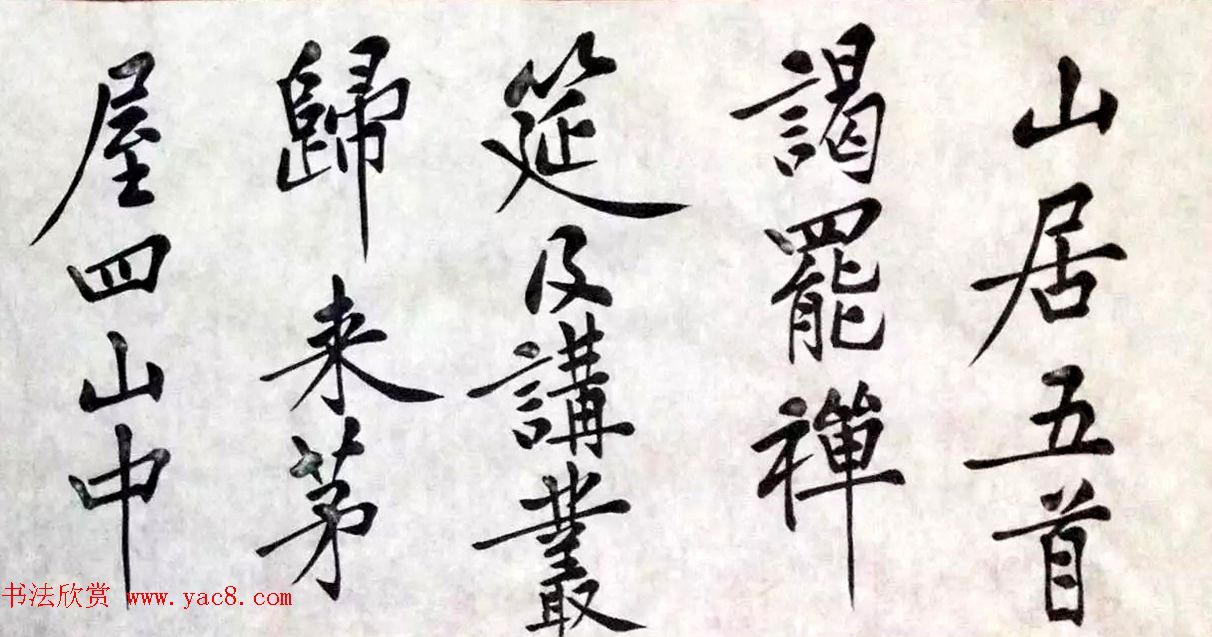 山居五首
謁罷禪
筵及講叢
歸来茅
屋四山中
书法欣赏 www.yac8.com